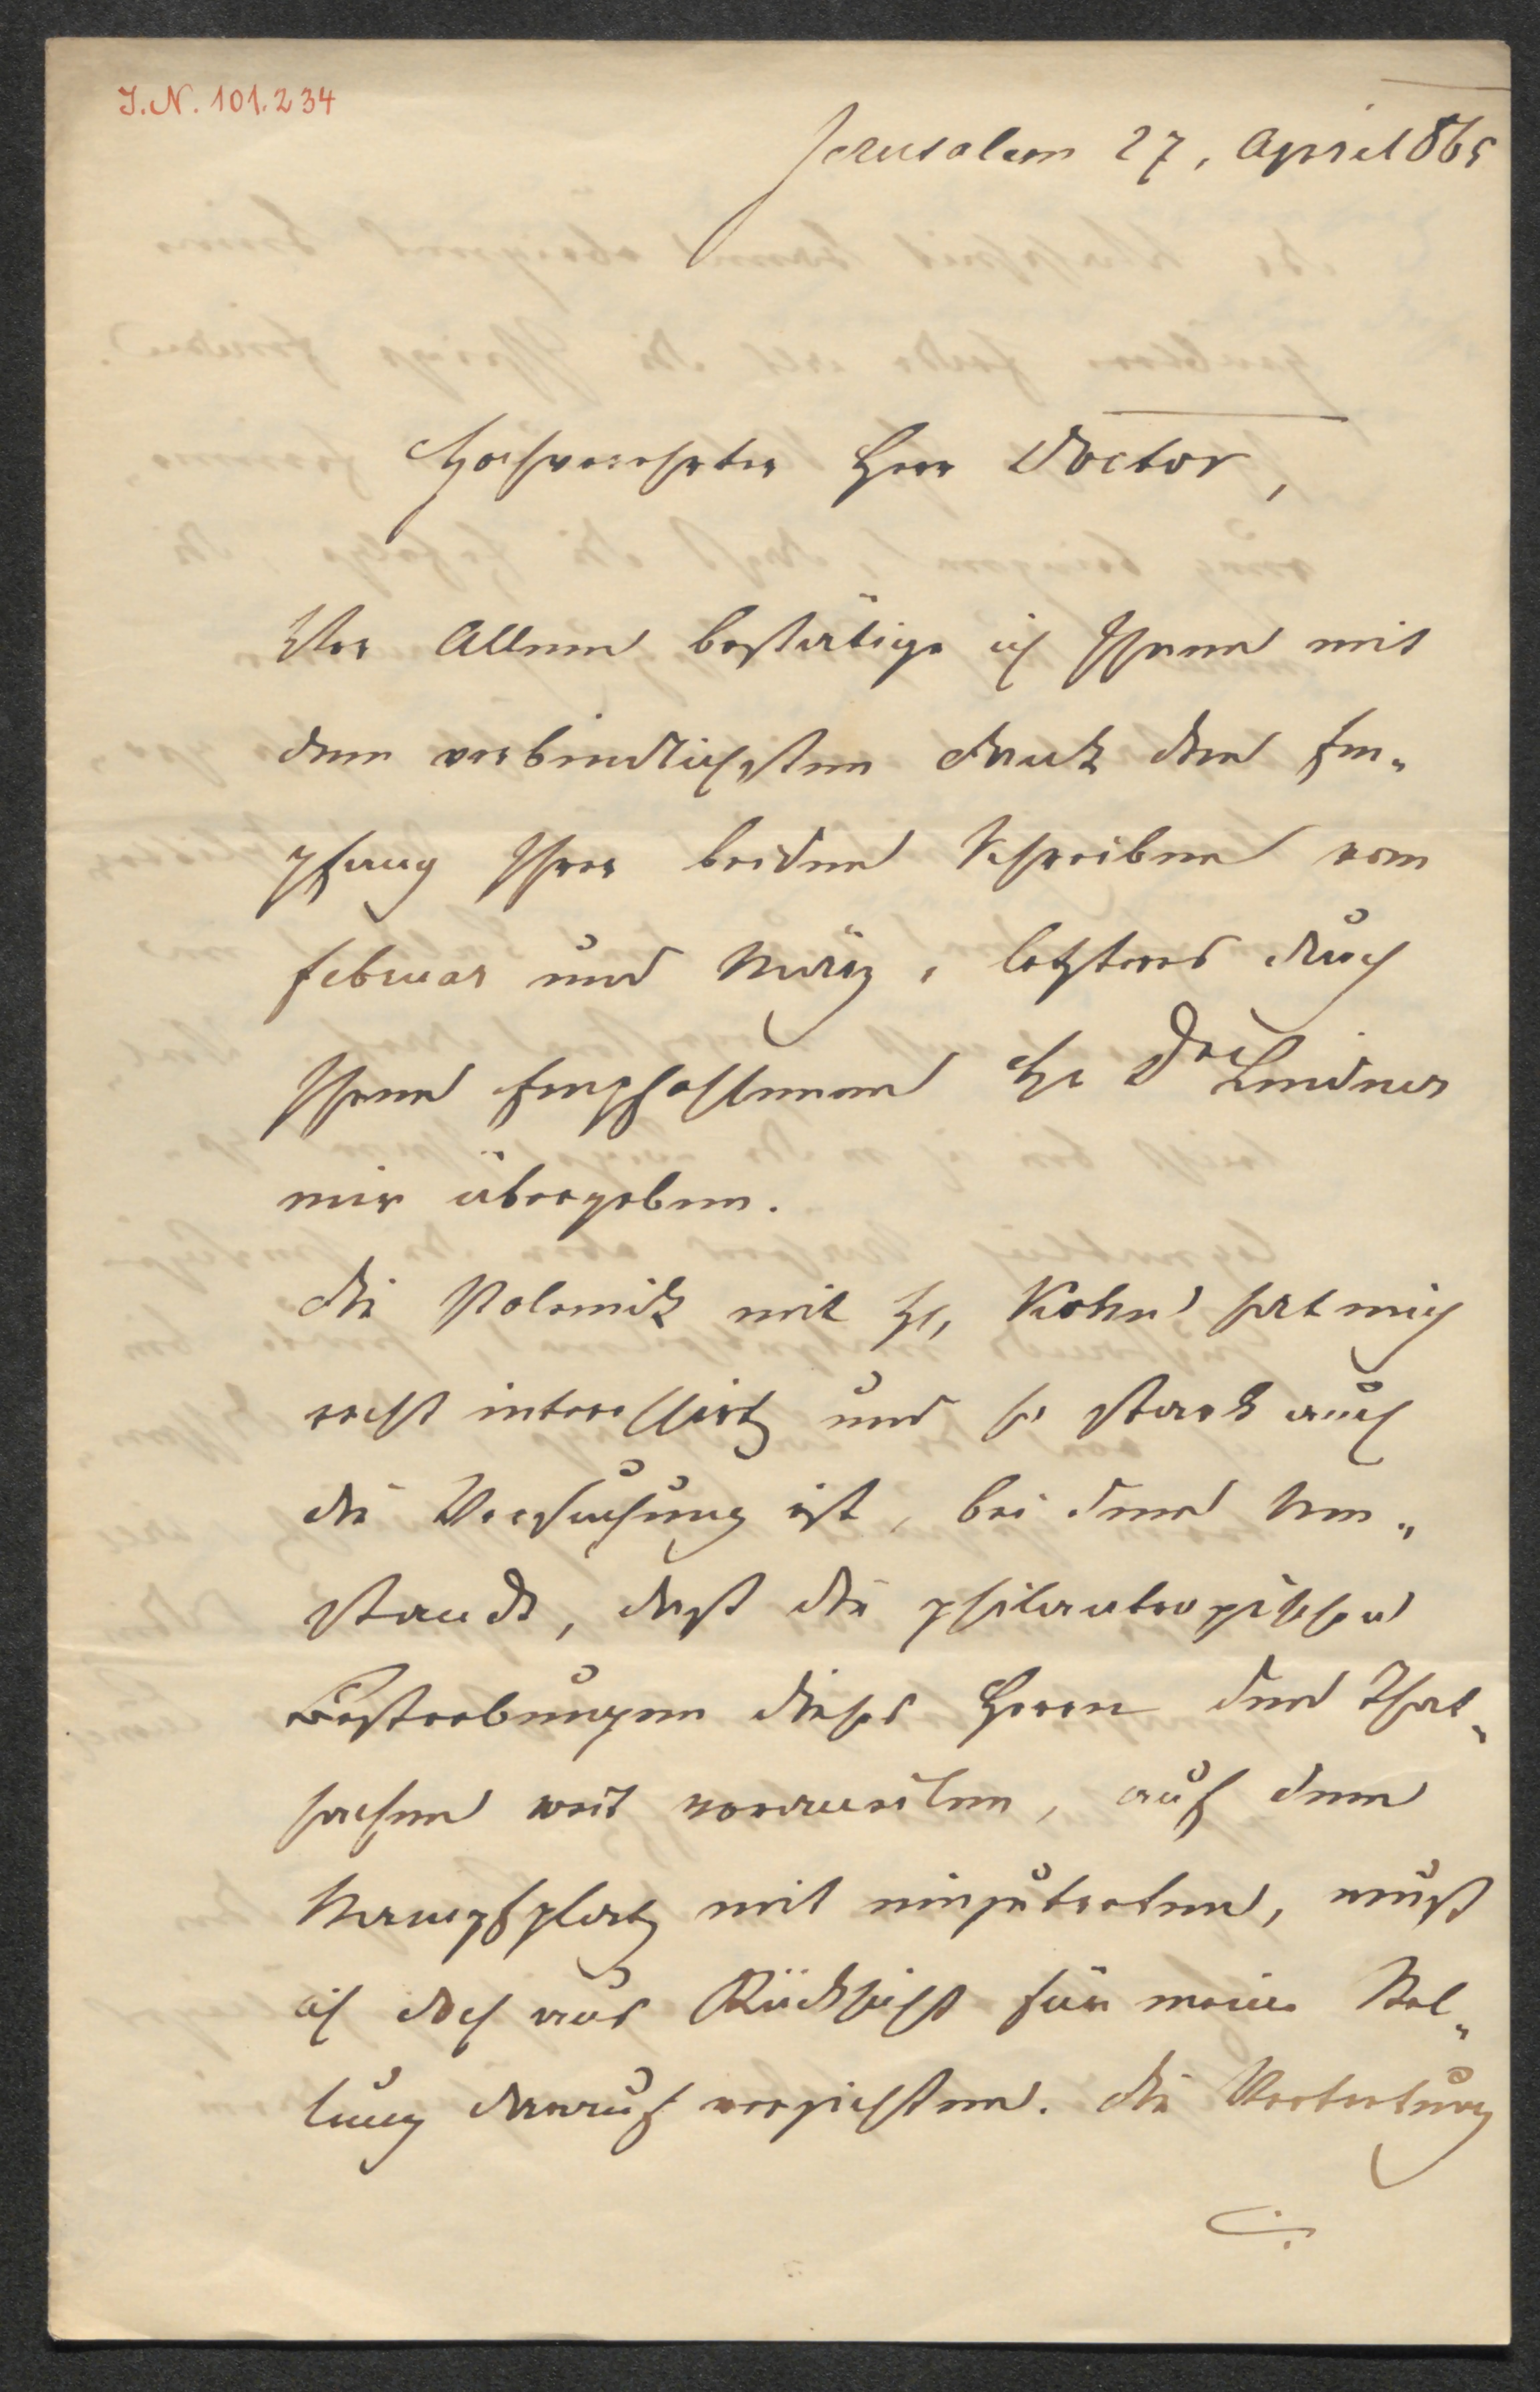 J. N. 101.234
Jerusalem 27, April 865
Hochverehrter Herr Doctor,
Vor Allem bestätige ich Ihnen mit
dem verbindlichsten Dank den Em„
pfang Ihrer beiden Schreiben vom
Februar und März, letzteres durch
Ihren Empfohlenen H. Doct Lindner
mir übergeben.
Die Polemik mit H. Kohn hat mich
recht interessirt und so stark auch
die Versuchung ist, bei dem Um„
stande, daß die philantropischen
Bestrebungen dieses Herrn den That„
sachen weit vorauseilen, auf den
Kampfplatz mit einzutreten, muß
ich doch aus Rücksicht für meine Stel„
lung darauf verzichten. Die Vertretung